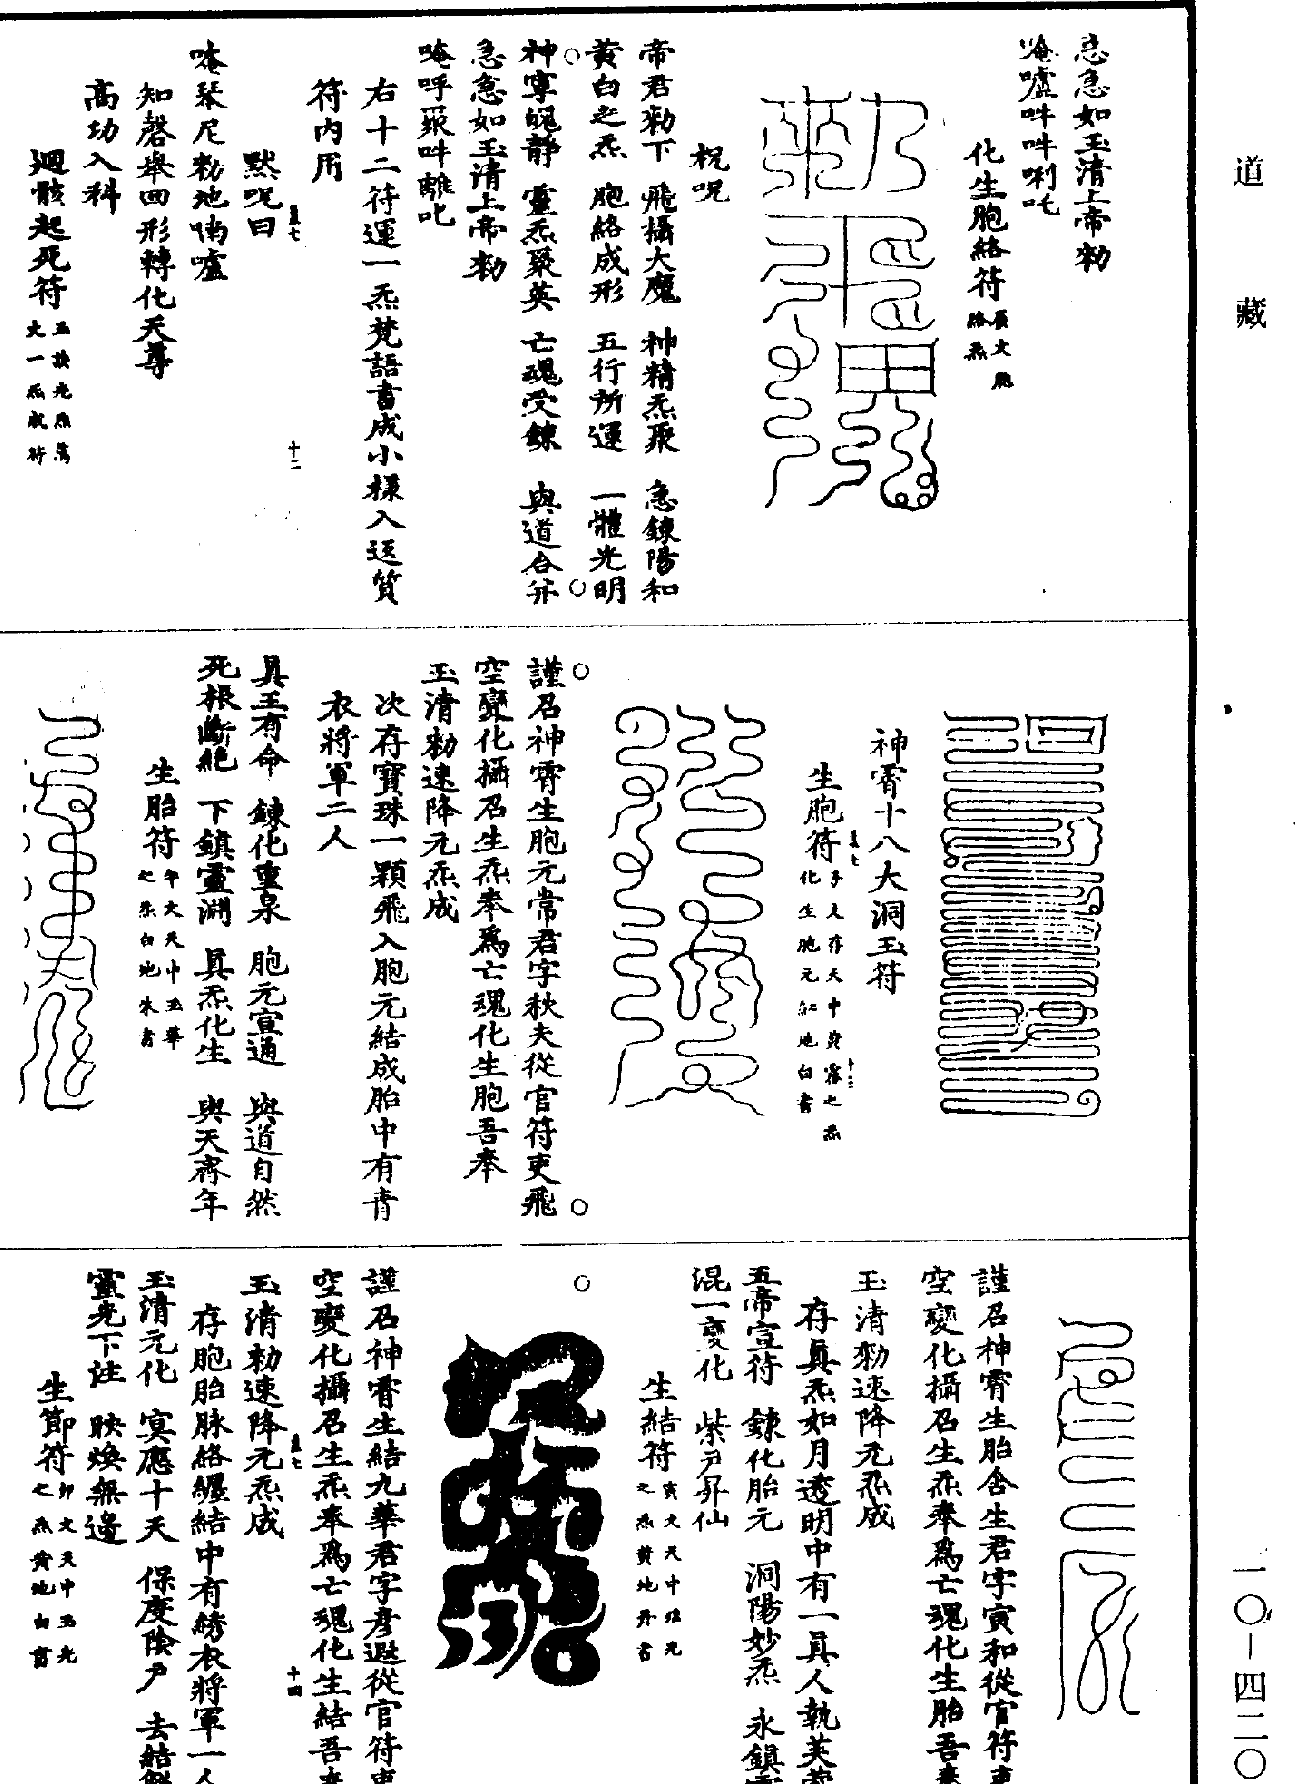 道藏
一〇—四二〇
急急如玉清上帝勑
唵嚧吽吽唎吒
化生胞絡符
祝呪
帝君勑下　飛攝大魔　神精炁聚　急鍊陽和
黃白之炁　胞絡成形　五行所運　一體光明
神寧魄靜　靈炁聚英　亡魂受鍊　與道合并
急急如玉清上帝勑
唵呼聚吽離叱
右十二符運一炁梵語書成小樣入返質
符內用
默呪曰
唵琴尼勑地喃嚧
知磬舉回形轉化天尊
高功入科
迴骸起死符
十二
神霄十八大洞玉符
生胞符
化生胞元紅地白書
十三
謹召神霄生胞元常君字秋夫從官符吏飛
空變化攝召生炁奉爲亡魂化生胞吾奉
玉清勑速降元炁成
次存寶珠一顆飛入胞元結成胎中有青
衣將軍二人
眞王有命　鍊化重泉　胞元宣通　與道自然
死根斷絕　下鎮靈淵　眞炁化生　與天齊年
生胎符
午文天中玉華
之炁白地朱書
謹召神霄生胎含生君字寅和從官符吏
空變化攝召生炁奉爲亡魂化生胎吾奉
玉清勑速降元炁成
存眞炁如月透明中有一眞人執芙蓉
五帝宣符　鍊化胎元　洞陽妙炁　永鎮
混一變化　紫戶昇仙
生結符
之炁黃地丹書
謹召神霄生結九華君字彥遐從官符吏
空變化攝召生炁奉爲亡魂化生結吾奉
玉清勑速降元炁成
十四
存胞胎脉絡纒結中有綉衣將軍一人
玉清元化　寞應十天　保度陰尸　去結
靈光下注　映煥無邊
生節符
卯文天中玉光
之炁黃地白書